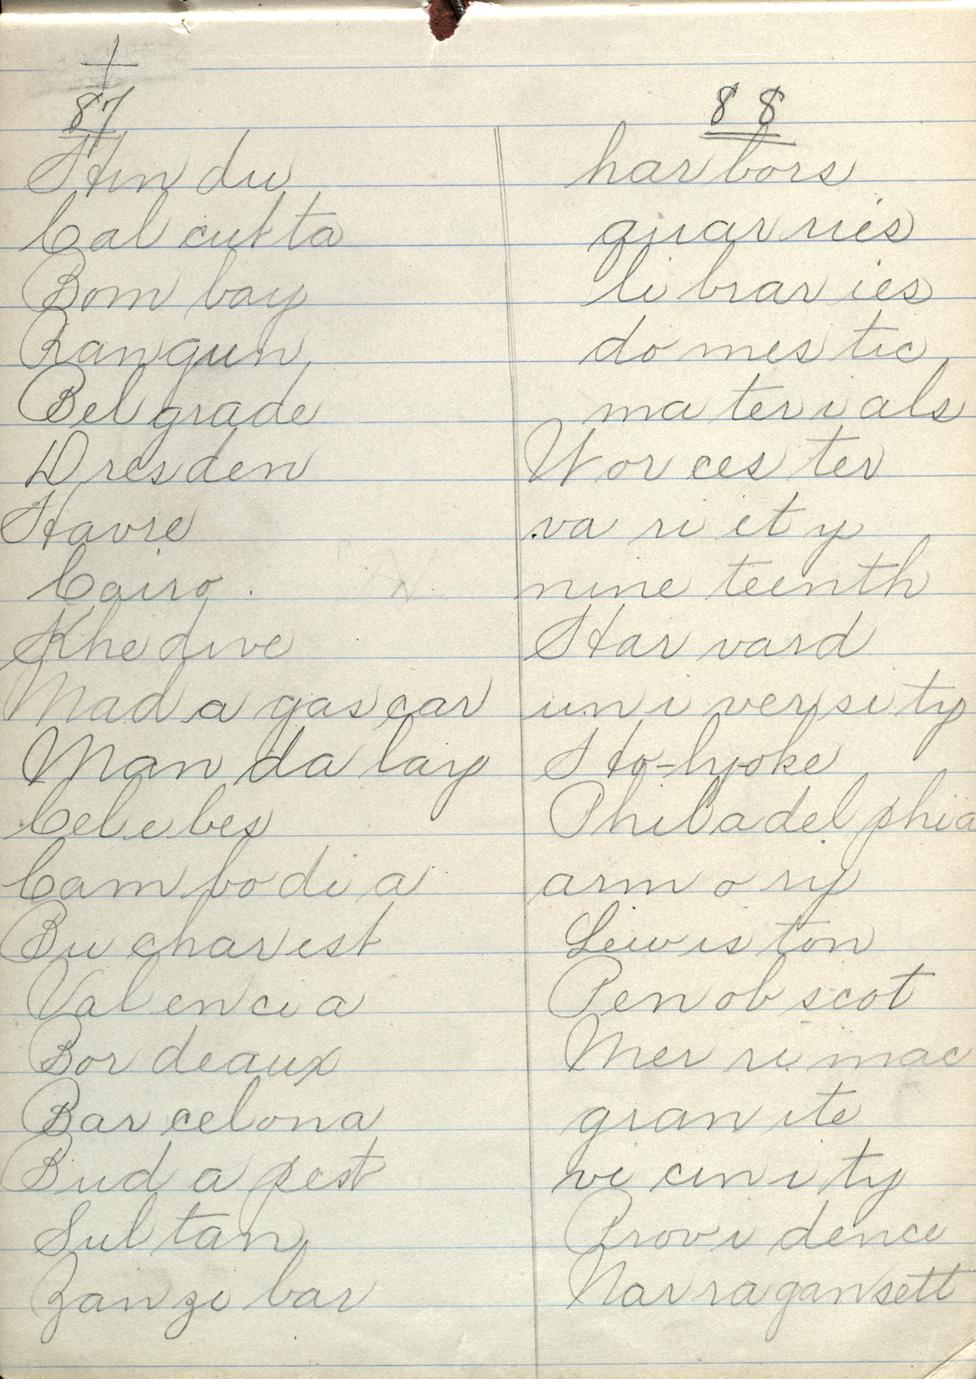 87
Hin du
Cal cut ta
Bom bay
Rangun
Bel grade
Dresden
Havre
Cairo.
Khe dive
Mad a gas car
Man da lay
Cel e bes
Cam bo di a
Bu char est
Val en ci a
Bor deaux
Bar celona
Bud a pest
Sul tan
Zan zi bar
88
har bors
quar ries
li brar ies
do mes tic
ma teri als
Wor ces ter
va ri et y
nine teenth
Har vard
un i ver si ty
Ho-lyoke
Philadel phia
arm o ry
Lew is ton
Pen ob scot
Mer ri mac
gran ite
vi cin i ty
Provi dence
Nar ra gan sett